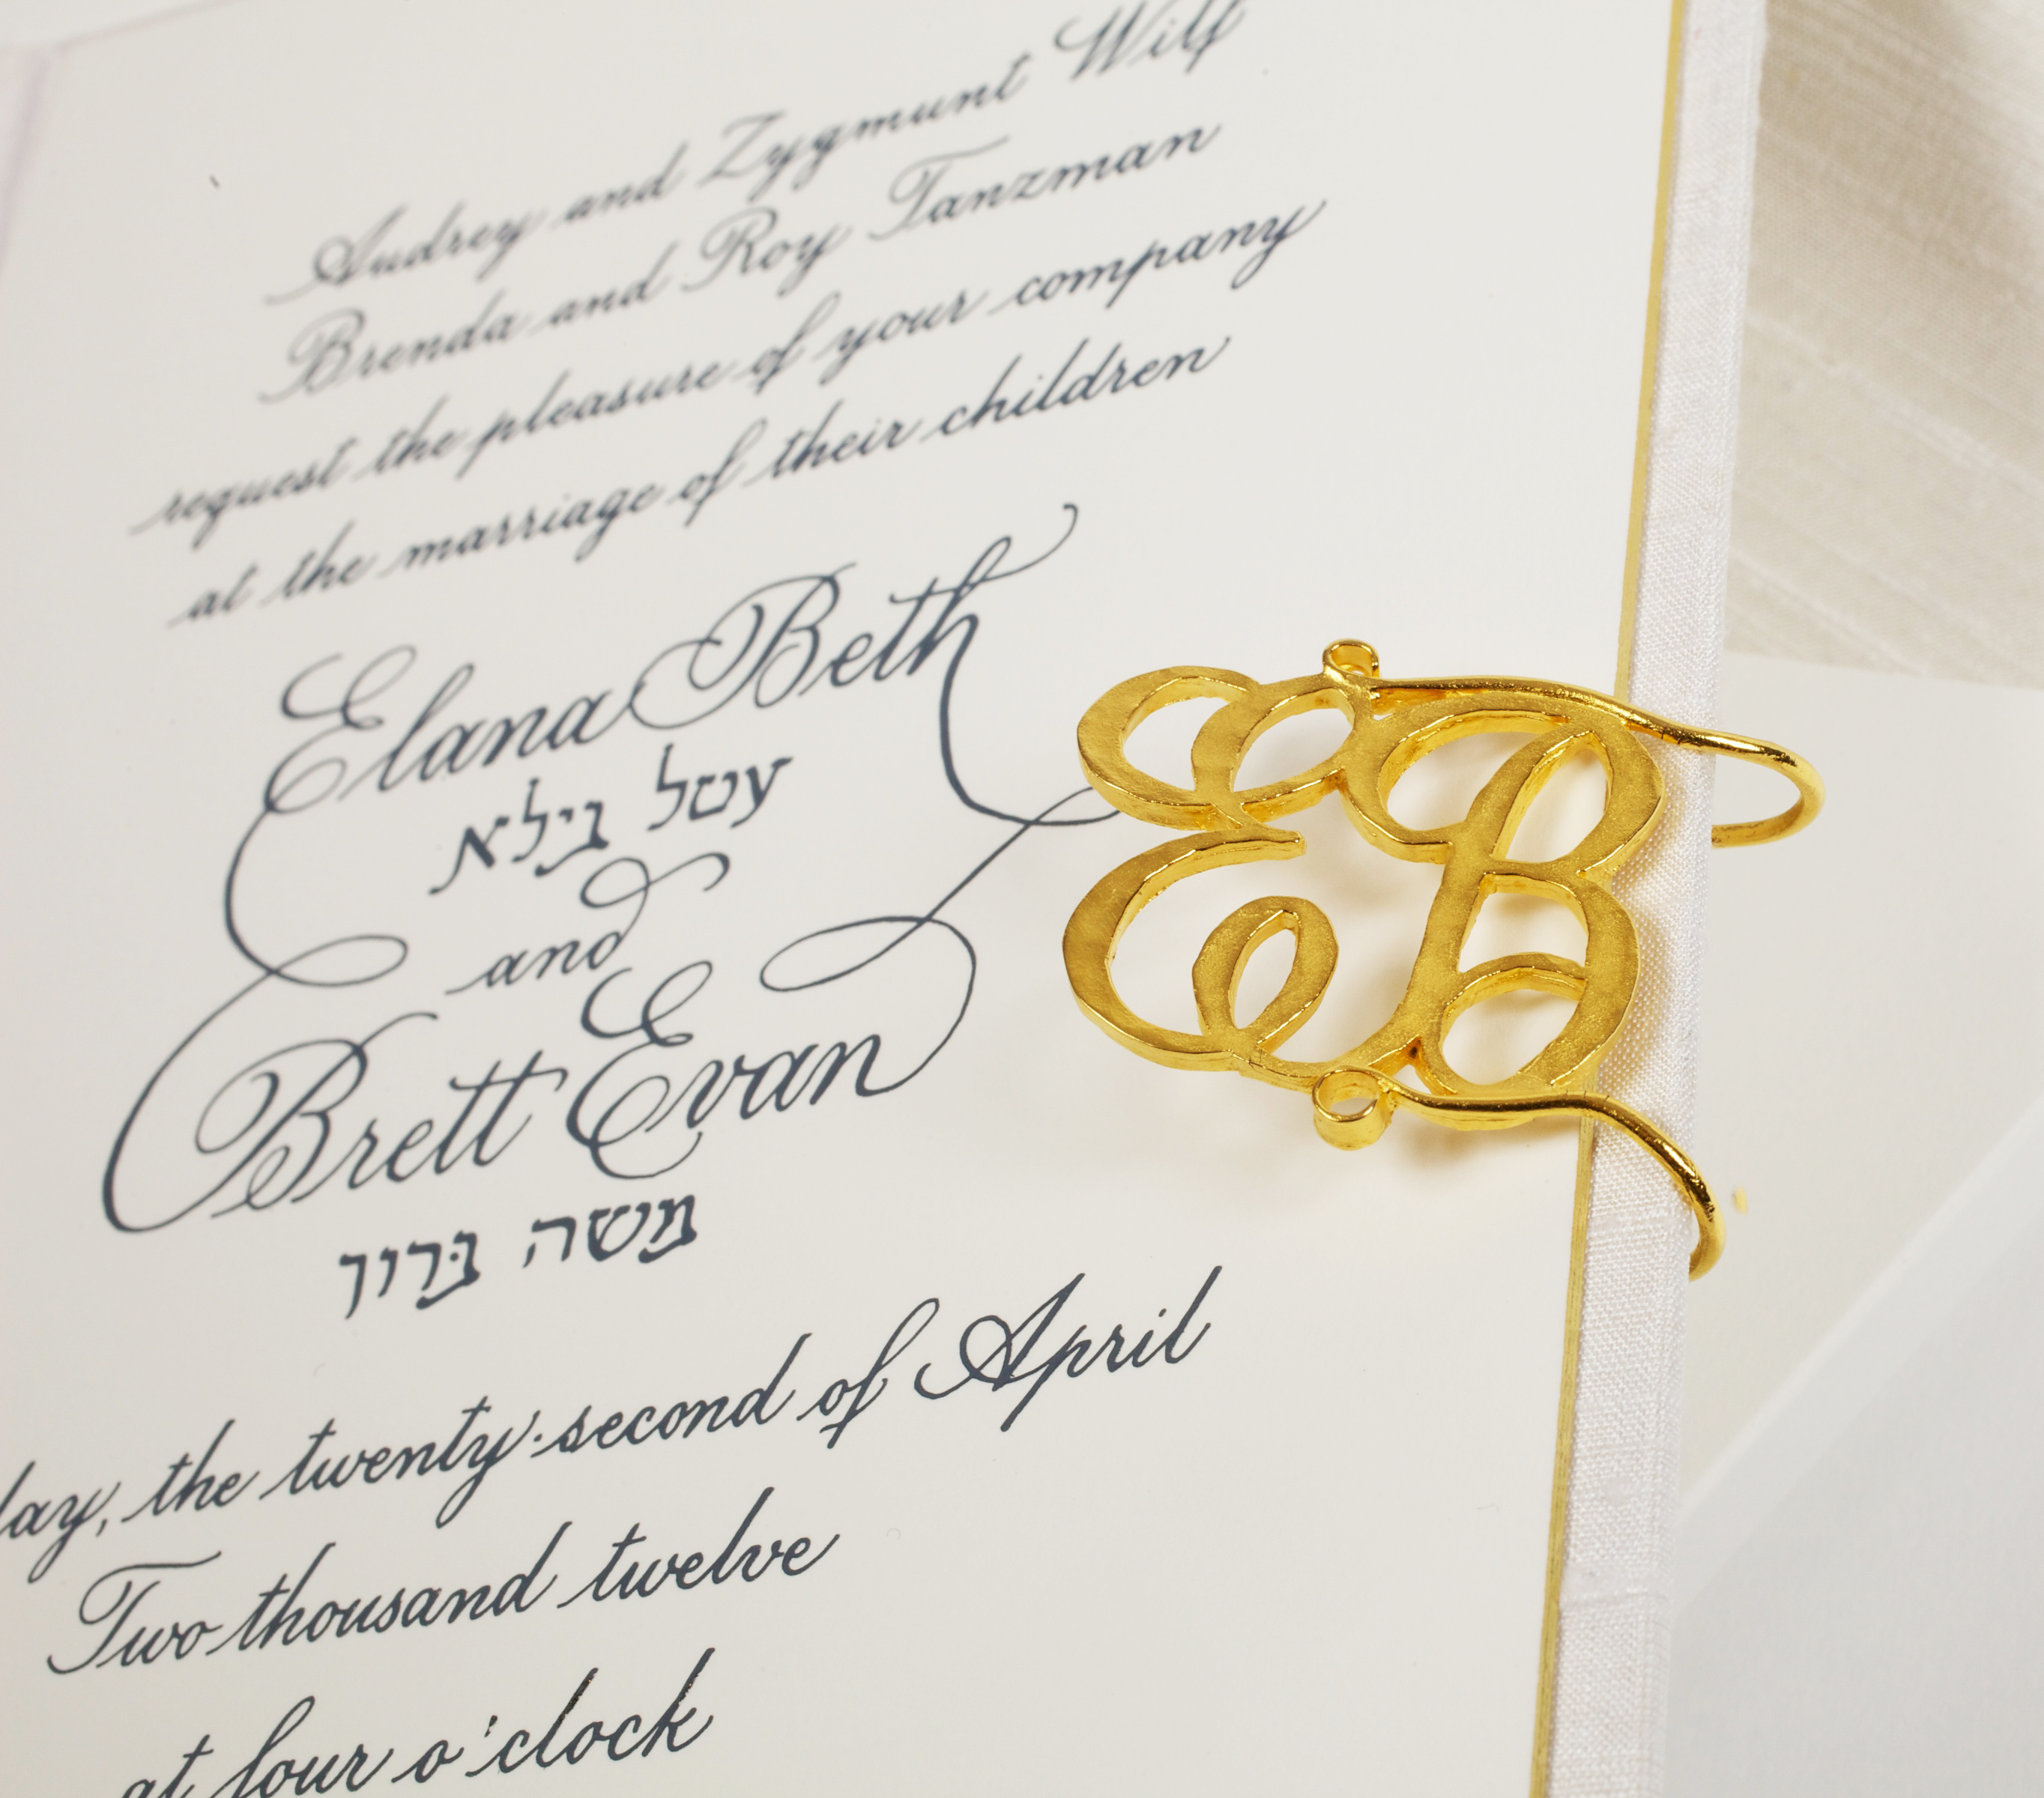 Audrey and Zygmunt Wilf
Brenda and Roy Tanzman
request the pleasure of your company
at the marriage of their children
Elana Beth
עטל בילא
and
Brett Evan
משה ברוך
day, the twenty-second of April
Two thousand twelve
at four o'clock
EB